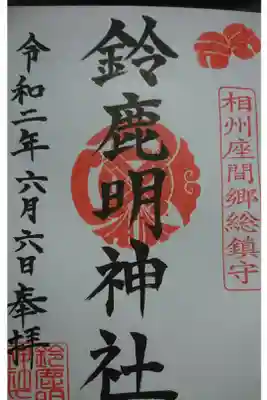 相州座間郷総鎮守
鈴鹿明神社
令和二年六月六日奉拝
鈴鹿明
神社